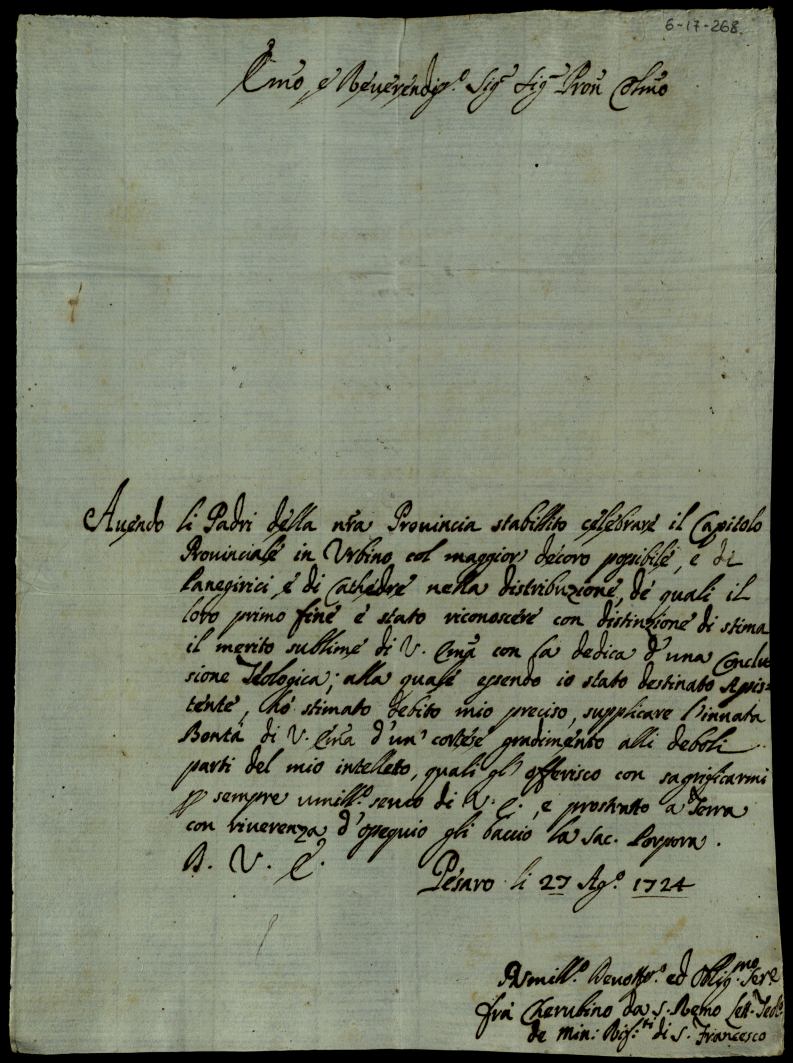 6-17-268.
Emo, e Reverendis.o Sig.r Sig.r Pron Colmo
Auendo li Padri della nr̃a Prouincia stabillito celebrare il Capitolo
Prouinciale in Vrbino col maggior decoro possibile, e di
Panegirici e di Cathedre nella distribuzione, de quali il
loro primo fine è stato riconoscere con distinzione di stima
il merito sublime di V. Em̃a con la dedica d'una Conclu
sione Teologica; alla quale essendo io stato destinato Assis=
tente, hò stimato debito mio preciso, supplicare l'innata
Bontà di V. Em̃a d'un' cortese gradimento alli deboli
parti del mio intelleto, quali gl' offerisco con sagrificarmi
p sempre umill.o seruo di V. E., e prostrato a Terra
con riuerenza d'ossequio gli baccio la Sac. Porpora.
D. V. E.
Pesaro li 27 Ag.o 1724
Vmill.o Deuotis.o ed Oblig.mo Ser.e
frà Cherubino da S. Remo Lett. Teol.
de Min: Rif.ti di S. Francesco